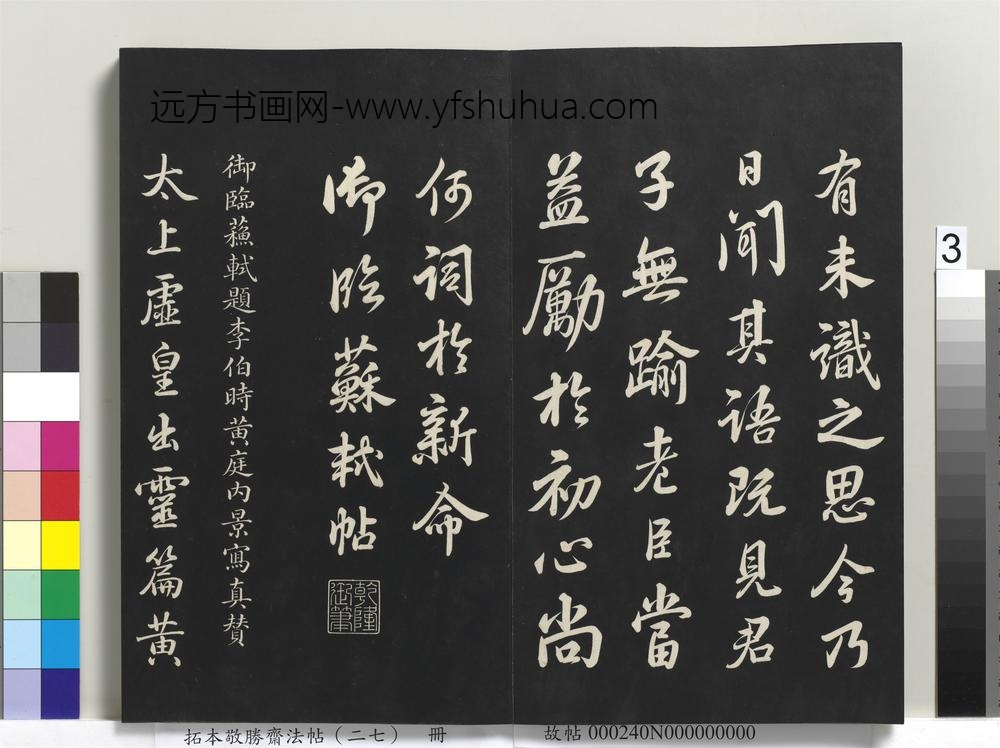 远方书画网-www.yfshuhua.com
有未識之思今乃
日聞其語既見君
子無踰老臣當
益勵於初心尚
何詞於新命
御臨蘇軾帖
乾隆御筆
御臨蘇軾題李伯時黄庭内景寫真賛
太上虛皇出靈篇黄
3
拓本敬勝齋法帖（二七） 冊
故帖 000240N000000000